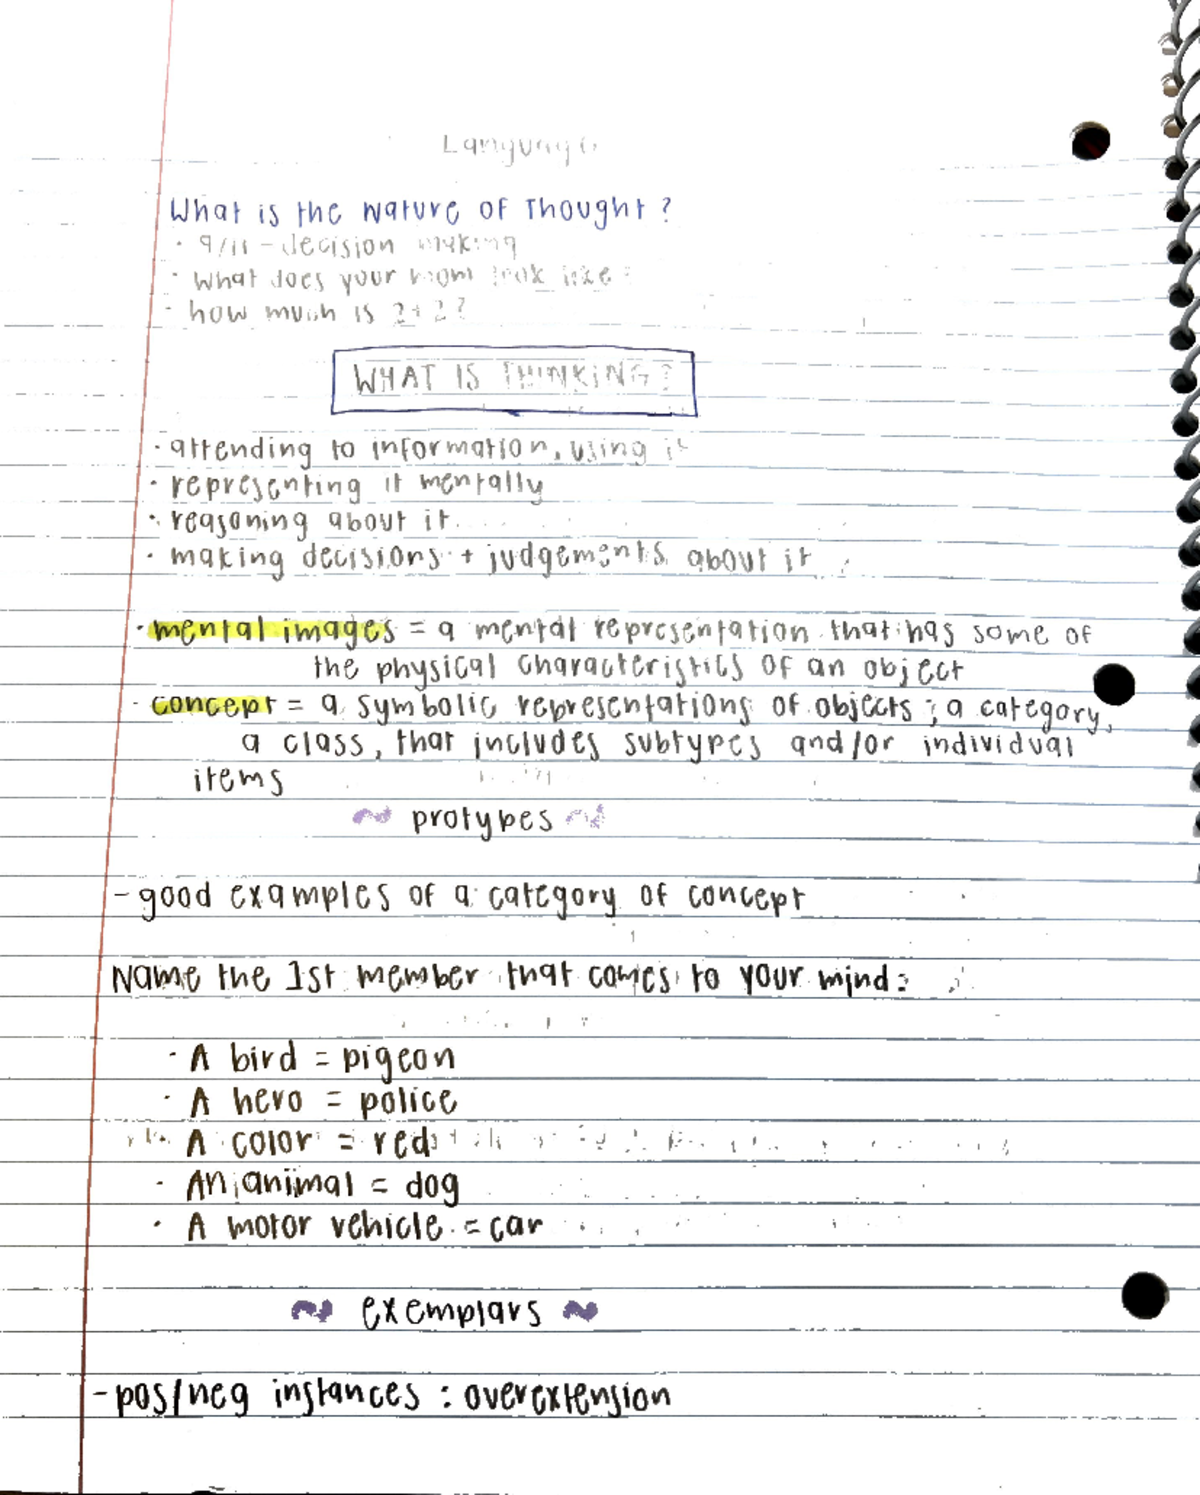 Language
What is the Nature of Thought?
· 9/11 - decision making
· What does your mom look like
· how much is 2+2?
WHAT IS THINKING?
· attending to information, using it
· representing it mentally
· reasoning about it
· making decisions + judgements about it
· mental images = a mental representation that has some of
the physical characteristics of an object
· concept = a symbolic representations of objects ; a category,
a class, that includes subtypes and/or individual
items
~ protypes ~
- good examples of a category of concept
Name the 1st member that comes to your mind:
· A bird = pigeon
· A hero = police
A color = red
· An animal = dog
· A motor vehicle = car
~ exemplars ~
- pos/neg instances : overextension